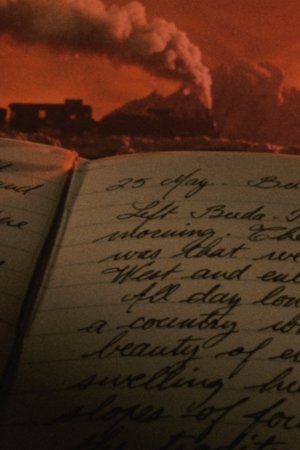 25 May. Bu
Left Buda-
morning. The
was that we
West and en
All day lo
a country w
beauty of e
swelling h
slopes of fo